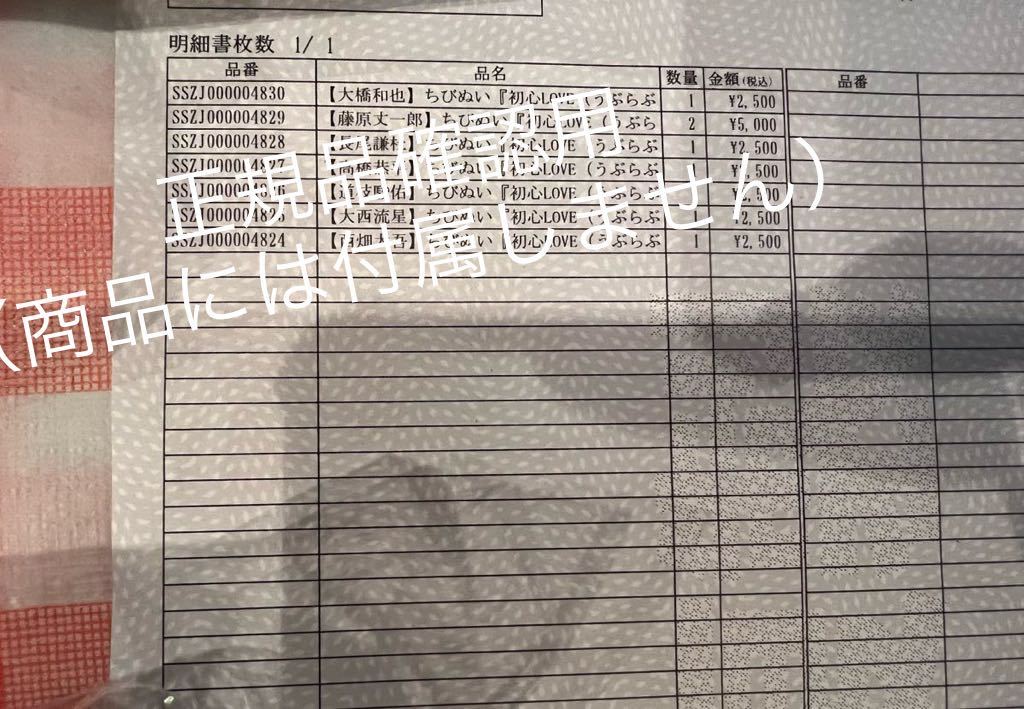 明細書枚数 1/ 1
品番 品名 数量 金額(税込) 品番
SSZJ000004830 【大橋和也】ちびぬい『初心LOVE(うぶらぶ 1 ¥2,500
SSZJ000004829 【藤原丈一郎】ちびぬい『初心LOVE(うぶら 2 ¥5,000
SSZJ000004828 【長尾謙杜】ちびぬい『初心LOVE(うぶらぶ 1 ¥2,500
SSZJ000004827 【高橋恭平】ちびぬい『初心LOVE(うぶらぶ 1 ¥2,500
SSZJ000004826 【道枝駿佑】ちびぬい『初心LOVE(うぶらぶ ¥2,500
SSZJ000004825 【大西流星】ちびぬい『初心LOVE(うぶらぶ 1 ¥2,500
SSZJ000004824 【西畑大吾】ちびぬい『初心LOVE(うぶらぶ 1 ¥2,500
正規品確認用
(商品には付属しません)